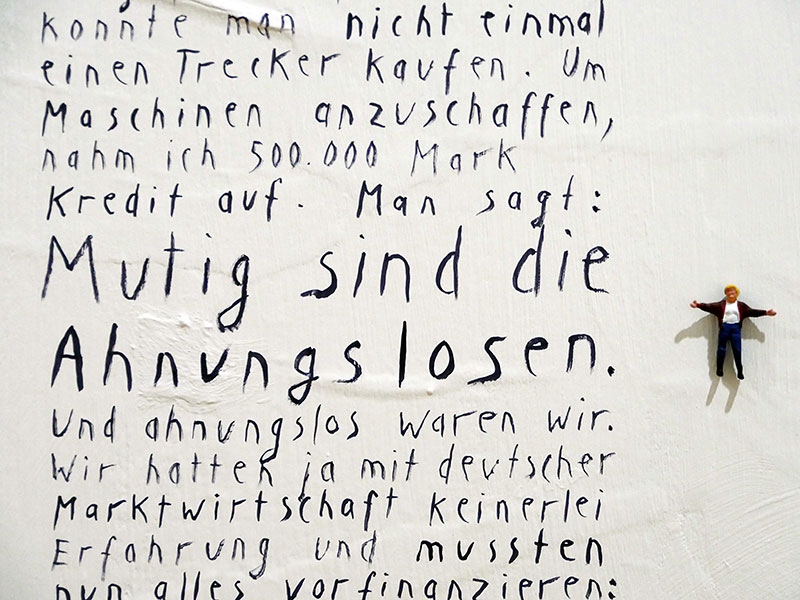 konnte man nicht einmal
einen Trecker kaufen. Um
Maschinen anzuschaffen,
nahm ich 500.000 Mark
Kredit auf. Man sagt:
Mutig sind die
Ahnungslosen.
Und ahnungslos waren wir.
Wir hatten ja mit deutscher
Marktwirtschaft keinerlei
Erfahrung und mussten
nun alles vorfinanzieren: